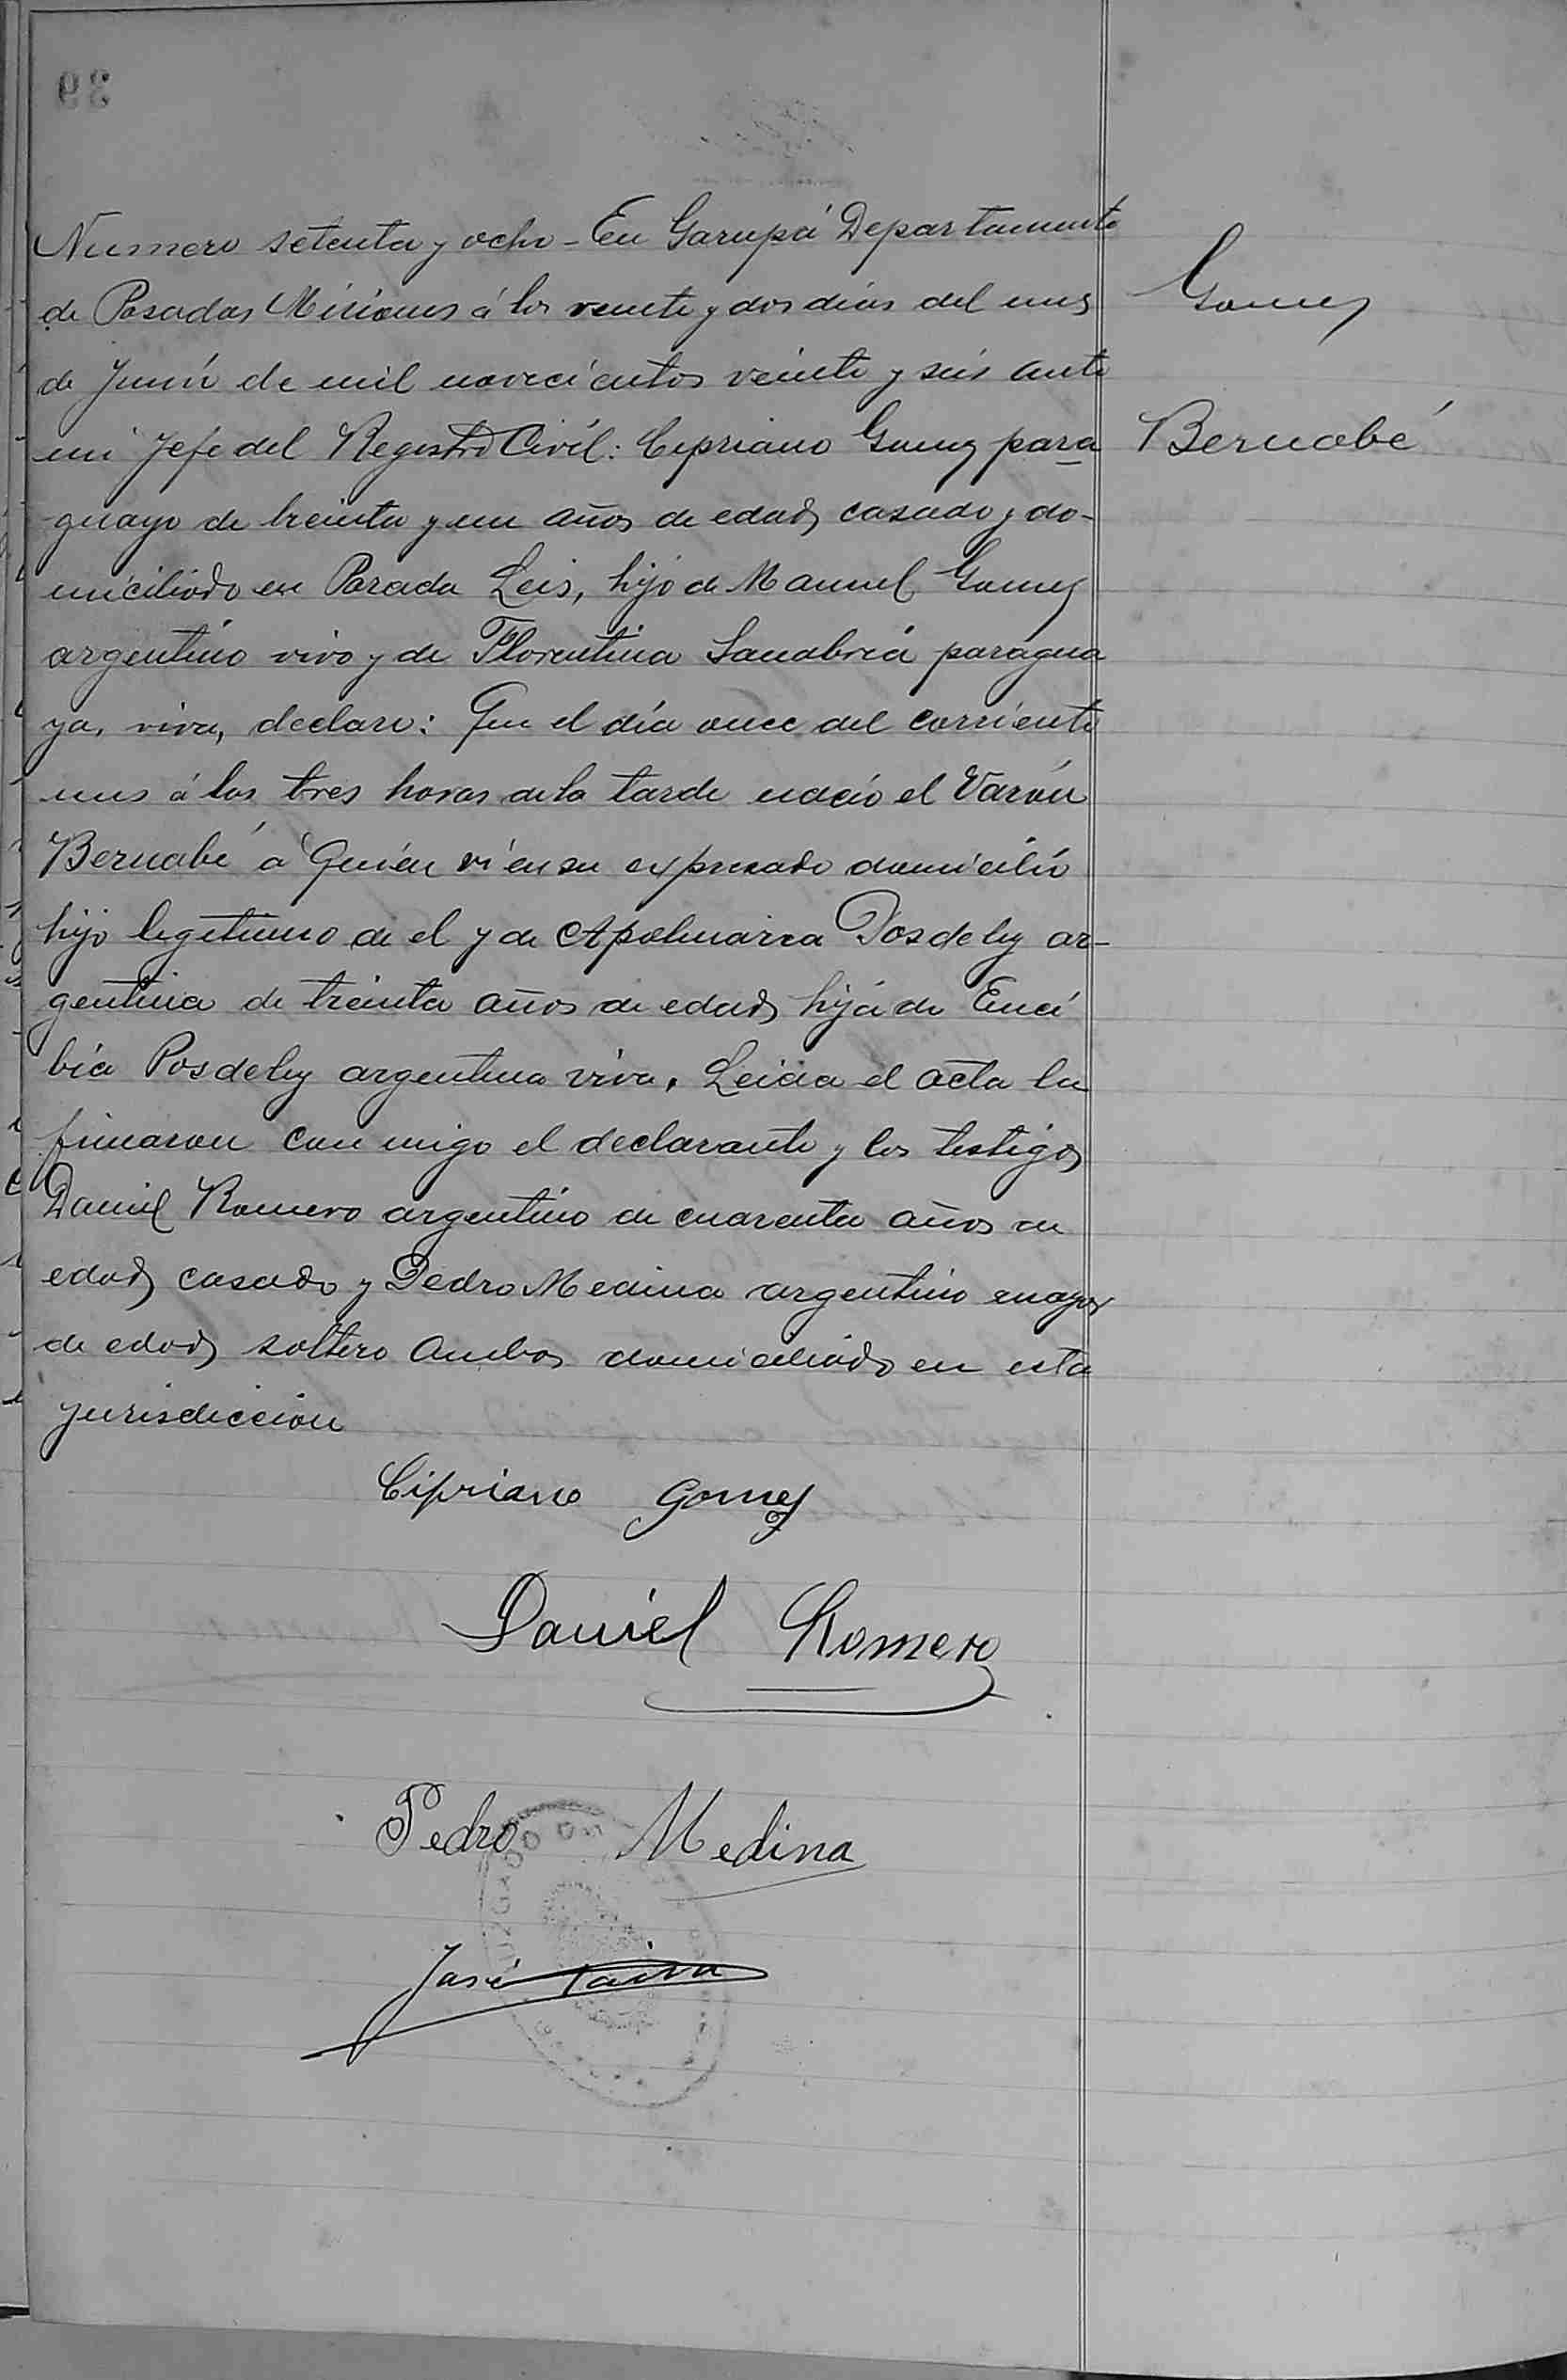 Numero setenta y ocho - En Garupá Departamento
de Posadas Misiones á los veinte y dos dias del mes
de Junio de mil novecientos veinte y seis ante
mi Jefe del Registro Civil: Cipriano Gomez para
guayo de treinta y un años de edad, casado y do-
miciliado en Parada Leis, hijo de Manuel Gomez
argentino vivo y de Florentina Sanabria paragua
ya, viva, declaro: Que el día once del corriente
mes á las tres horas de la tarde nació el Varón
Bernabé á Quién vi en su expresado domicilio
hijo legitimo de el y de Apolinaria Posdeley ar-
gentina de treinta años de edad, hija de
Posdeley argentina viva. Leida el acta la
firmaron con migo el declarante y los testigos
Daniel Romero argentino de cuarenta años de
edad, casado y Pedro Medina argentino mayor
de edad, soltero ambos domiciliado en esta
jurisdiccion
Gomez
Bernabé
Cipriano Gomez
Daniel Romero
Pedro Medina
José